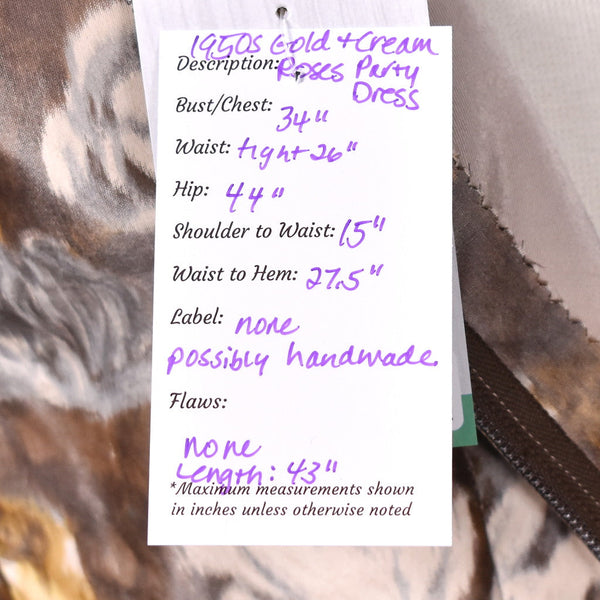 1950s Gold + Cream
Description: Roses Party
Dress
Bust/Chest: 34"
Waist: tight 26"
Hip: 44"
Shoulder to Waist: 15"
Waist to Hem: 27.5"
Label: none
possibly handmade
Flaws:
none
Length: 43"
*Maximum measurements shown
in inches unless otherwise noted